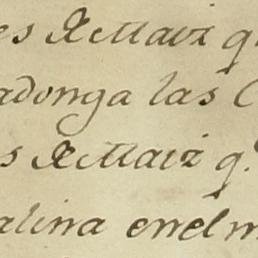 es de Maiz q.
adonga las C
s de Maiz q.
alina enel m